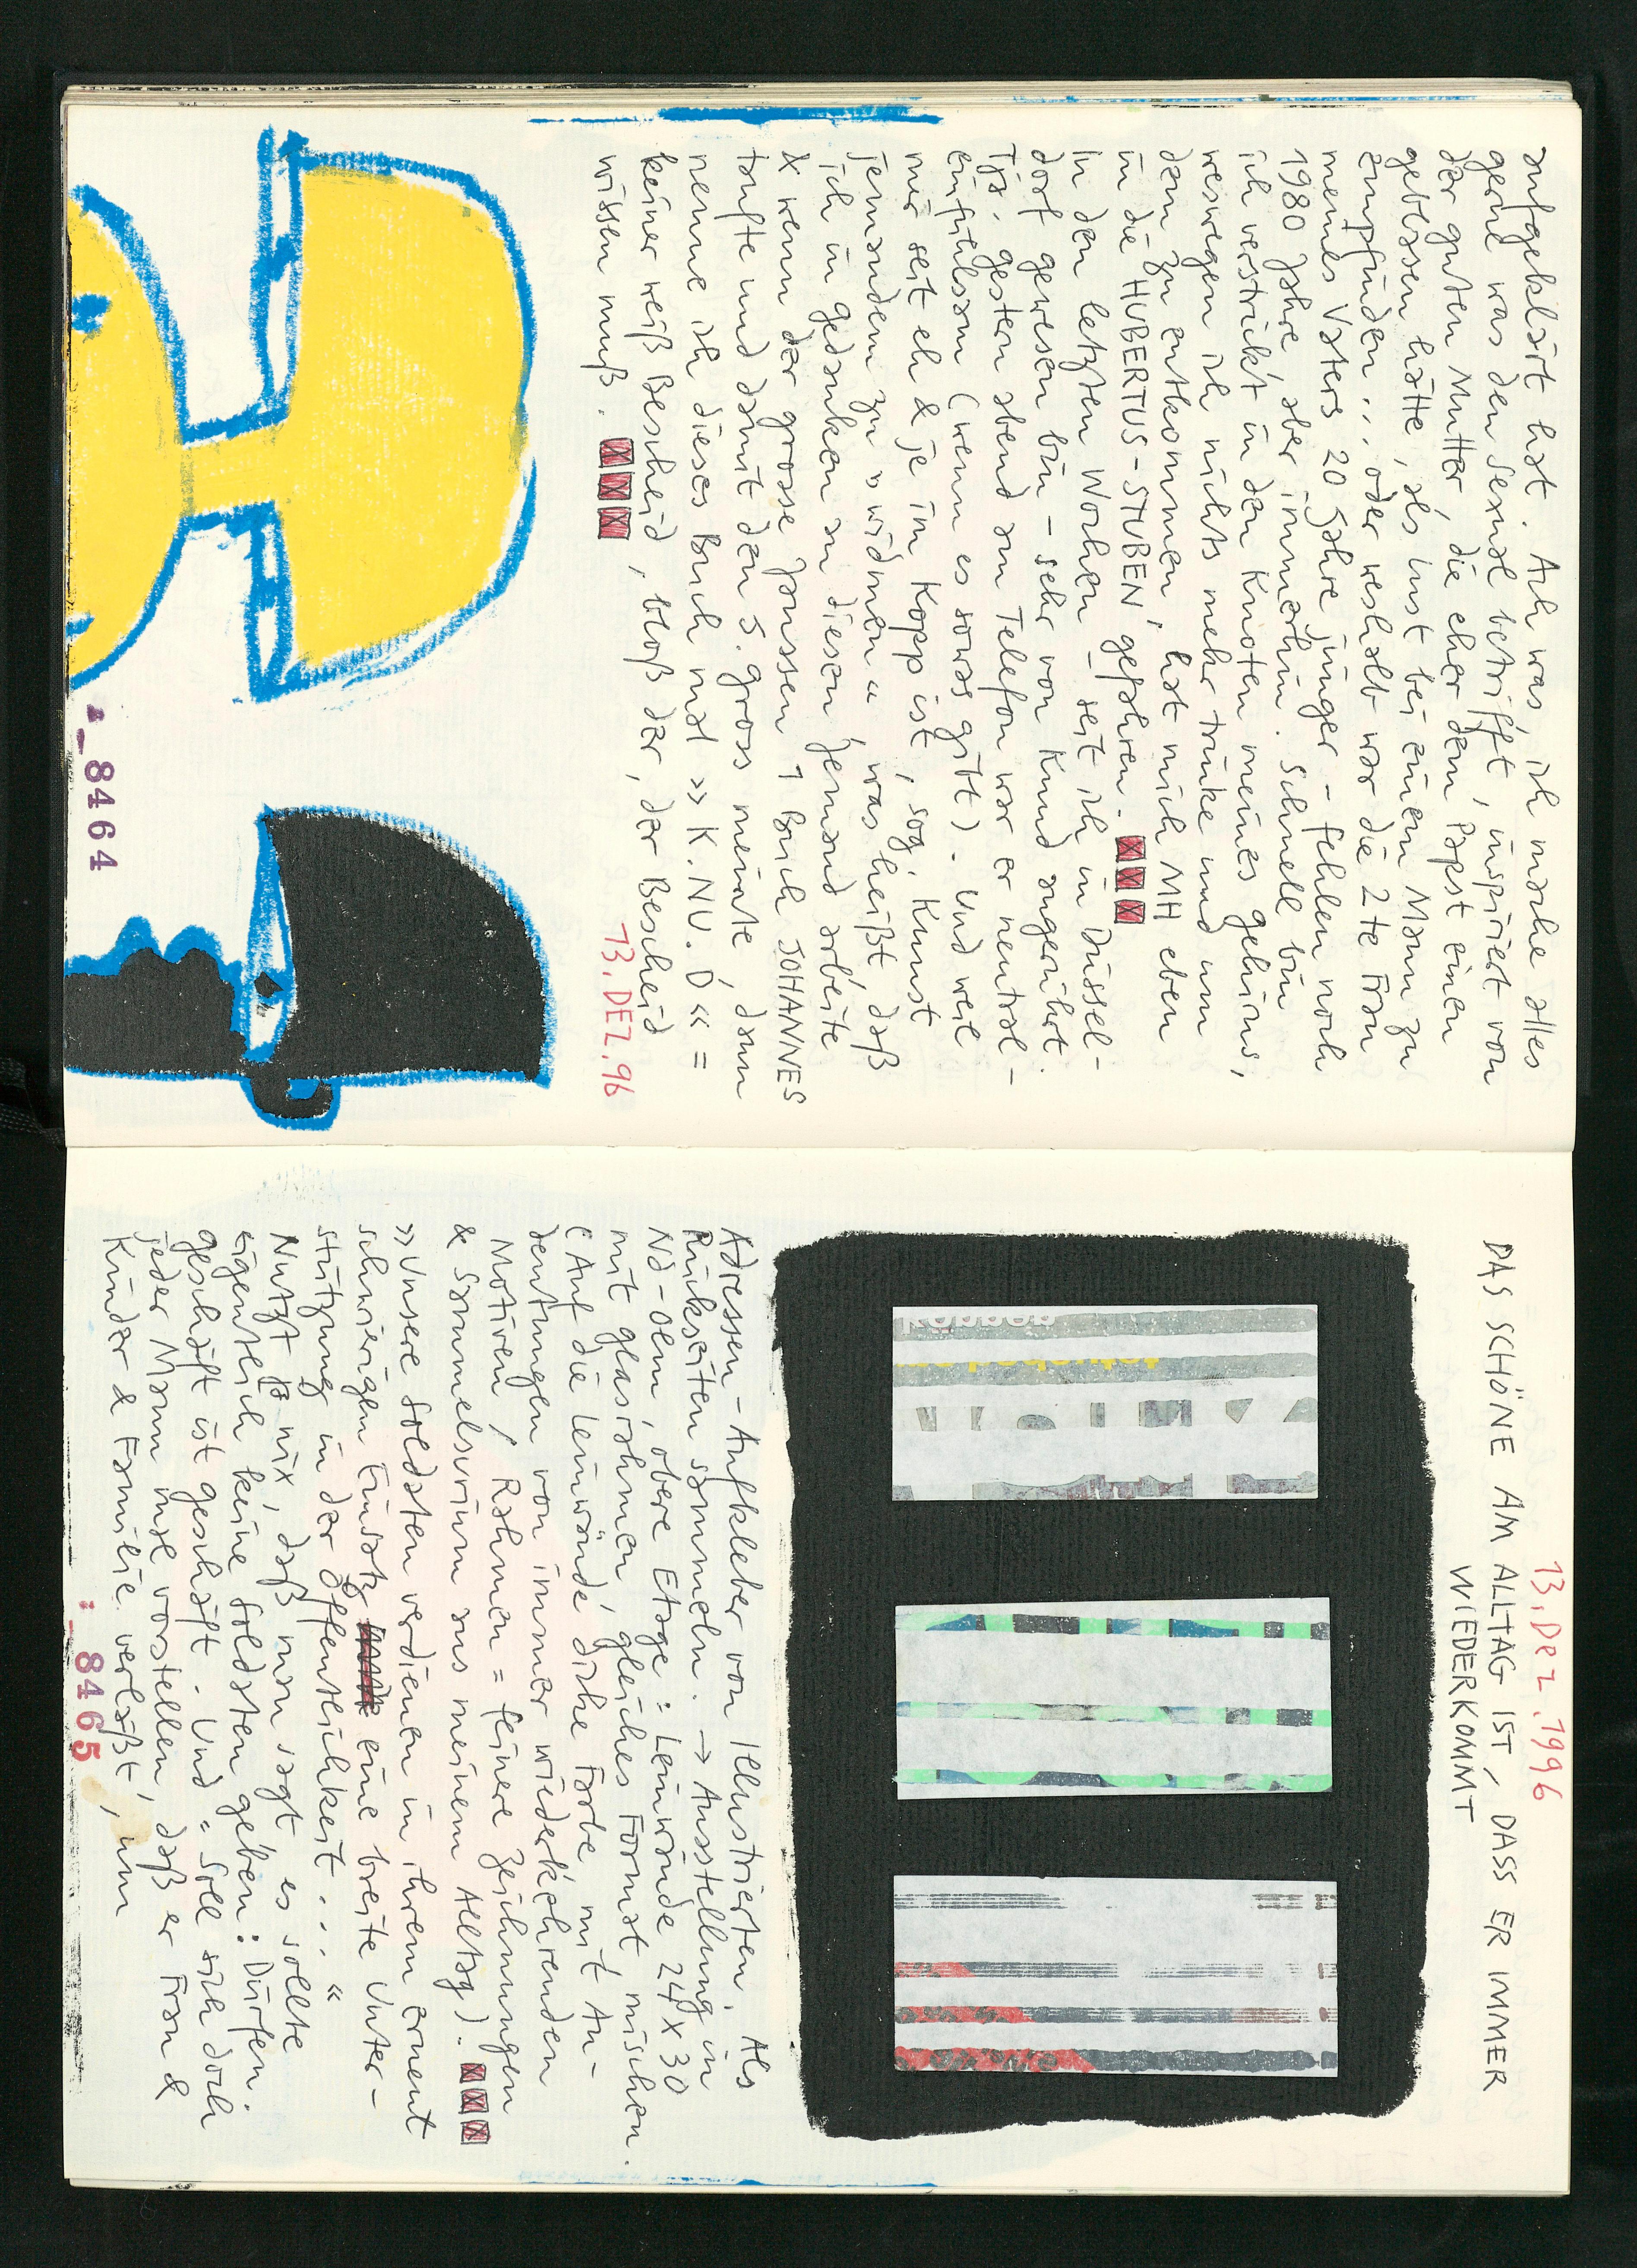 aufgeklärt hat. Ach was, ich mache alles
gerne was den Sexual betrifft, inspiriert von
der guten Mutter, die eher dem Papst einen
geblasen hätte, als Lust bei einem Mann zu
empfinden... oder weshalb war die 2te Frau
meines Vaters 20 Jahre jünger – fehlen noch
1980 Jahre aber immerhin. Schnell bin
ich verstrickt in den Knoten meines gehirns,
weswegen ich nichts mehr trinke und um
dem zu entkommen, hat mich MH eben
in die 'HUBERTUS-STUBEN' gefahren.
In den letzten Wochen – seit ich in Düssel-
dorf gewesen bin – sehr von Knud angerührt.
Tja, gestern abend am Telefon war er neutral-
einfühlsam (wenn es sowas gibt). Und weil
mir seit eh & je im Kopp ist, sog. Kunst
jemandem zu »widmen«, was heißt, daß
ich in gedanken an diesen jemand arbeite
& wenn der grosse Janssen 1 Buch JOHANNES
taufte und damit den J. gross meinte, dann
nenne ich dieses Buch mal » K.NU.D « =
keiner weiß Bescheid, bloß der, der Bescheid
wissen muß.
13. DEZ. 96
8464
13. Dez. 1996
DAS SCHÖNE AM ALLTAG IST, DASS ER IMMER
WIEDERKOMMT
Adressen-Aufkleber von Illustrierten. Als
Rückseiten sammeln. → Ausstellung in
Nd-Oem, obere Etage: Leinwände 24 x 30
mit glasrahmen gleiches Format mischen.
(Auf die Leinwände dicke Farbe, mit An-
deutungen von immer wiederkehrenden
Motiven, Rahmen = feinere Zeichnungen
& Sammelsurium aus meinem Alltag).
»Unsere Soldaten verdienen in ihrem erneut
schwierigen Einsatz eine breite Unter-
stützung in der Öffentlichkeit...«
Nutzt ja nix, daß man sagt es sollte
eigentlich keine Soldaten geben: Dürfen.
geschäft ist geschäft. Und: Soll sich doch
jeder Mann mal vorstellen, daß er Frau &
Kinder & Familie verläßt, um
8465